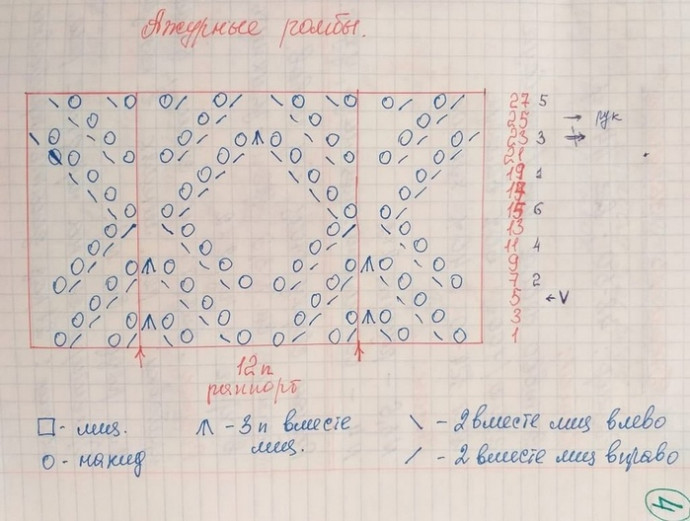 Ажурные ромбы.
27 5
25 → рук
23 3
21
19 1
17
15 6
13
11 4
9
7 2
5 ← V
3
1
12п
раппорт
□ - лиц.
ʌ - 3 п вместе
лиц.
\ - 2 вместе лиц влево
о - накид
/ - 2 вместе лиц вправо
4